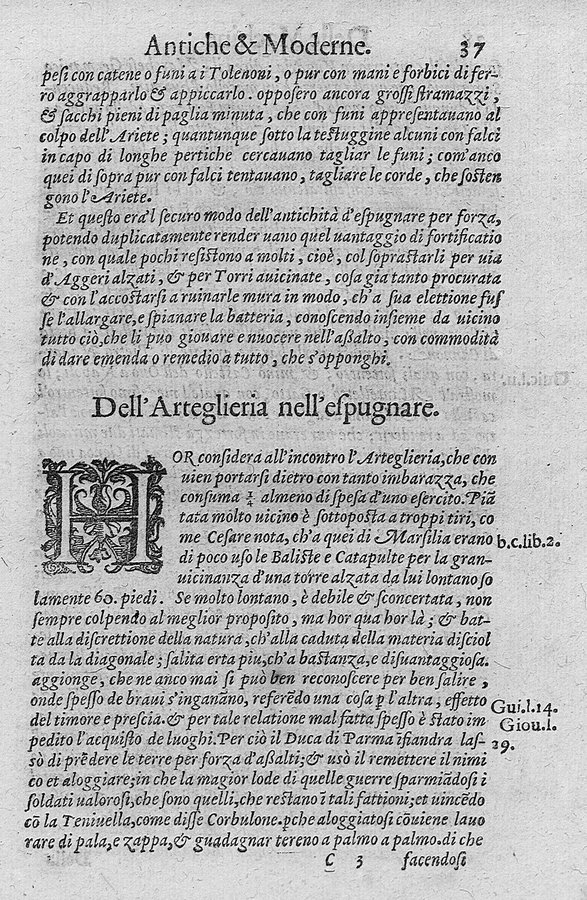 Antiche & Moderne. 37
pesi con catene o funi a i Tolenoni, o pur con mani e forbici di fer-
ro aggrapparlo & appiccarlo. opposero ancora grossi stramazzi,
& sacchi pieni di paglia minuta, che con funi appresentauano al
colpo dell'Ariete; quantunque sotto la testuggine alcuni con falci
in capo di longhe pertiche cercauano tagliar le funi; com'anco
quei di sopra pur con falci tentauano, tagliare le corde, che sosten
gono l'Ariete.
Et questo era'l securo modo dell'antichità d'espugnare per forza,
potendo duplicatamente render uano quel uantaggio di fortificatio
ne, con quale pochi resistono a molti, cioè, col soprastarli per uia
d'Aggeri alzati, & per Torri auicinate, cosa gia tanto procurata
& con l'accostarsi a ruinarle mura in modo, ch'a sua elettione fus
se l'allargare, e spianare la batteria, conoscendo insieme da uicino
tutto ciò, che li puo giouare e nuocere nell'aßalto, con commodità
di dare emenda o remedio a tutto, che s'opponghi.
Dell'Arteglieria nell'espugnare.
HOR considera all'incontro l'Arteglieria, che con
uien portarsi dietro con tanto imbarazza, che
consuma ¾ almeno di spesa d'uno esercito. Piā
tata molto uicino è sottoposta a troppi tiri, co
me Cesare nota, ch'a quei di Marsilia erano b.c.lib.2.
di poco uso le Baliste e Catapulte per la gran-
uicinanza d'una torre alzata da lui lontano so
lamente 60. piedi. Se molto lontano, è debile & sconcertata, non
sempre colpendo al meglior proposito, ma hor qua hor là; & bat-
te alla discrettione della natura, ch'alla caduta della materia disciol
ta da la diagonale; salita erta piu, ch'a bastanza, e disuantaggiosa.
aggionge, che ne anco mai si può ben reconoscere per ben salire,
onde spesso de braui s'inganāno, referēdo una cosa ꝑ l'altra, effetto Gui.l.14.
del timore e prescia. & per tale relatione mal fatta spesso è stato im Giou.l.
pedito l'acquisto de luoghi. Per ciò il Duca di Parma ī fiandra las- 29.
sò di prēdere le terre per forza d'asalti; & usò il remettere il nimi
co et aloggiare; in che la magior lode di quelle guerre sparmiādosi i
soldati ualorosi, che sono quelli, che restano ī tali fattioni; et uincēdo
cō la Teniuella, come disse Corbulone. ꝑche aloggiatosi cōuiene lauo
rare di pala, e zappa, & guadagnar tereno a palmo a palmo. di che
C 3 facendosi